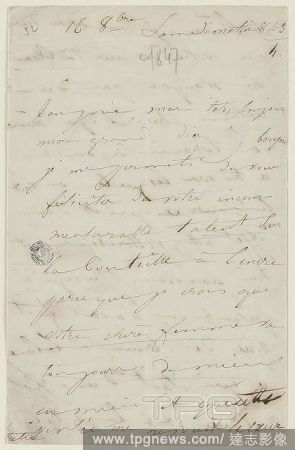 16 8bre Samedi matin 8h
1847
Bonjour mon toto, bonjour
mon grand
je me permets de vous
féliciter de votre incom
mensurable talent sur
la bouteille à l'encre
parce que je crois que
votre chère femme va
toujours de mieux
en mieux et que cette
le cœur
TPG
www.tpgnews.com / 達志影像